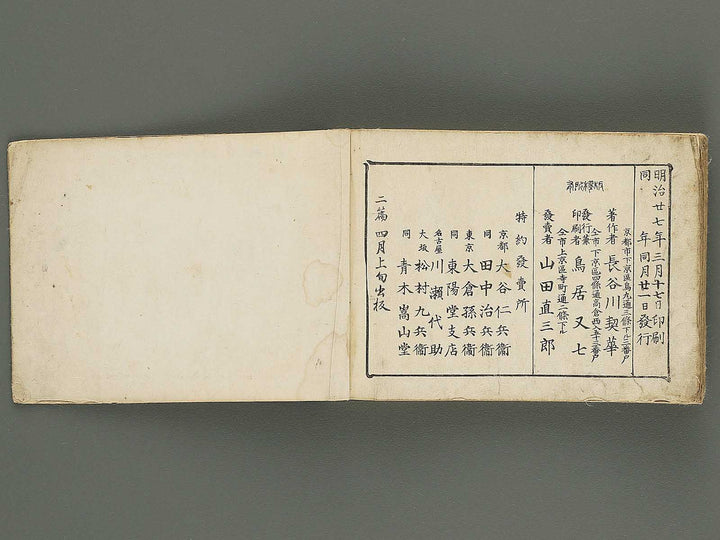 明治廿七年三月十七日印刷
同年同月廿一日發行
京都市下京區烏丸通三條下ル二番戸
著作者 長谷川契華
仝市下京區四條通高倉西入五十三番戸
發行兼印刷者 鳥居又七
仝市上京區寺町通二條下ル
發賣者 山田直三郎
版權所有
特約發賣所
京都 大谷仁兵衞
同 田中治兵衞
東京 大倉孫兵衞
同 東陽堂支店
名古屋 川瀬代助
大坂 松村九兵衞
同 青木嵩山堂
二篇四月上旬出板